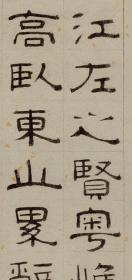 江左之賢粤
高臥東山累